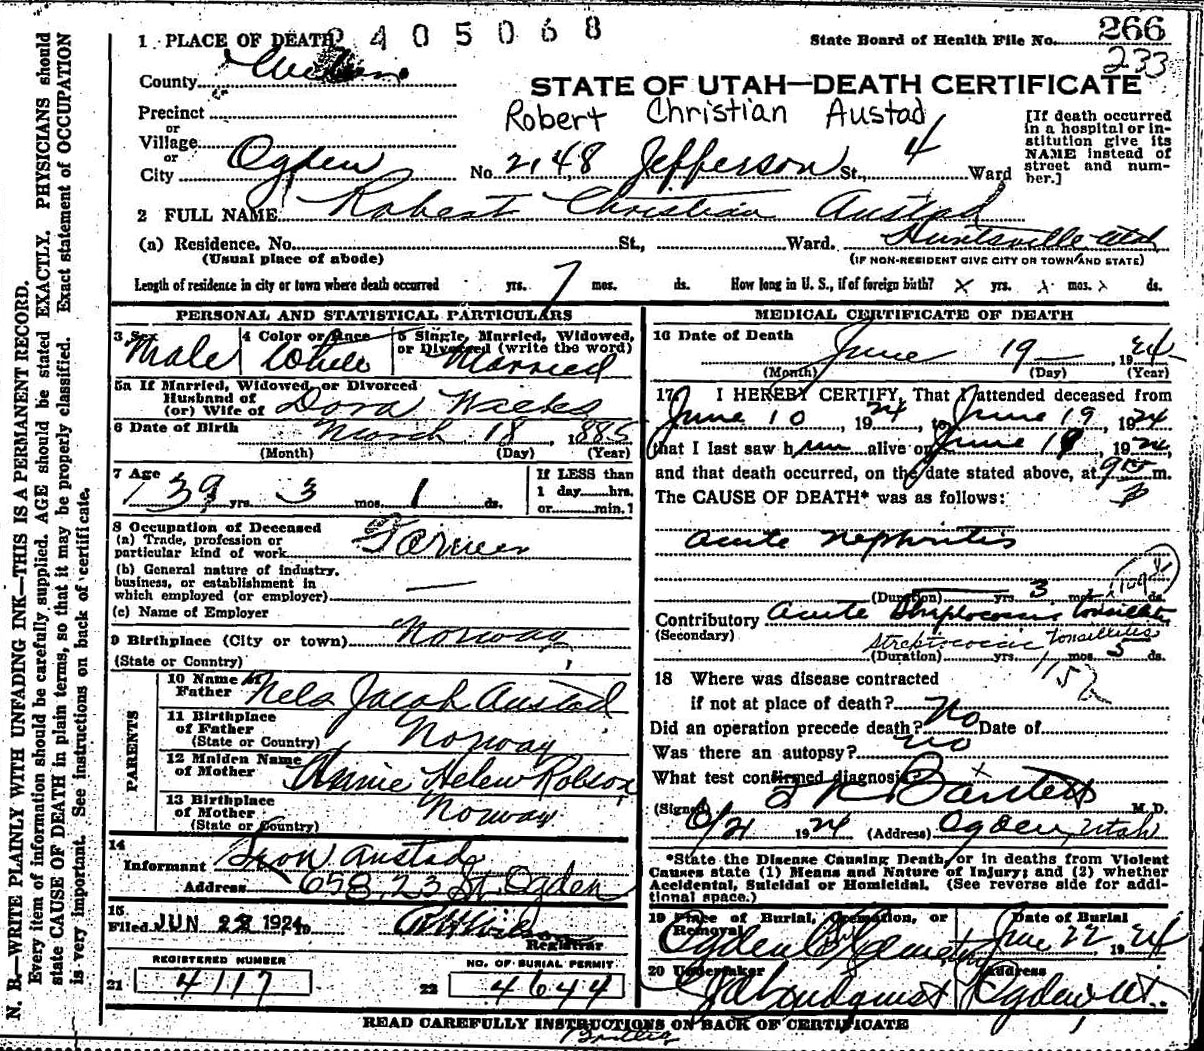 2405068
1 PLACE OF DEATH
State Board of Health File No. 266
233
County
STATE OF UTAH—DEATH CERTIFICATE
Precinct
Robert Christian Austad
or
Village
or
City Ogden No. 2148 Jefferson St., 4 Ward
[If death occurred
in a hospital or in-
stitution give its
NAME instead of
street and num-
ber.]
2 FULL NAME Robert Christian Austad
(a) Residence. No. St., Ward. Huntsville Utah
(Usual place of abode) (IF NON-RESIDENT GIVE CITY OR TOWN AND STATE)
Length of residence in city or town where death occurred yrs. 7 mos. ds. How long in U. S., if of foreign birth? x yrs. x mos. x ds.
PERSONAL AND STATISTICAL PARTICULARS
3 Sex 4 Color or Race 5 Single, Married, Widowed,
or Divorced (write the word)
Male White Married
5a If Married, Widowed, or Divorced
Husband of
(or) Wife of Dora Weeks
6 Date of Birth March 18, 1885
(Month) (Day) (Year)
7 Age
39 yrs. 3 mos. 1 ds.
If LESS than
1 day hrs.
or min.?
8 Occupation of Deceased
(a) Trade, profession or
particular kind of work Farmer
(b) General nature of industry,
business, or establishment in
which employed (or employer)
(c) Name of Employer
9 Birthplace (City or town) Norway
(State or Country)
PARENTS
10 Name of
Father Nels Jacob Austad
11 Birthplace
of Father
(State or Country) Norway
12 Maiden Name
of Mother Annie Helen Robson
13 Birthplace
of Mother
(State or Country) Norway
14
Informant Austad
Address 658, 23 St. Ogden
15
Filed JUN 1924, 19
Registrar
REGISTERED NUMBER
21 4117
NO. OF BURIAL PERMIT
22 4644
MEDICAL CERTIFICATE OF DEATH
16 Date of Death
June 19 1924
(Month) (Day) (Year)
17 I HEREBY CERTIFY, That I attended deceased from
June 10, 1924, to June 19 1924
that I last saw him alive on June 19, 1924,
and that death occurred, on the date stated above, at m.
The CAUSE OF DEATH* was as follows:
acute nephritis
(Duration) yrs. 3 mos. ds.
Contributory acute tonsillitis
(Secondary) Streptococcic Tonsillitis
(Duration) yrs. mos. 5 ds.
18 Where was disease contracted
if not at place of death?
Did an operation precede death? No Date of
Was there an autopsy? no
What test confirmed diagnosis? x
(Signed) M. D.
6/21 1924 (Address) Ogden, Utah
*State the Disease Causing Death, or in deaths from Violent
Causes state (1) Means and Nature of Injury; and (2) whether
Accidental, Suicidal or Homicidal. (See reverse side for addi-
tional space.)
19 Place of Burial, Cremation, or
Removal
Ogden City Cemetery
Date of Burial
June 22 1924
20 Undertaker
Lindquist
Address
Ogden Ut.
READ CAREFULLY INSTRUCTIONS ON BACK OF CERTIFICATE
N. B.—WRITE PLAINLY WITH UNFADING INK—THIS IS A PERMANENT RECORD.
Every item of information should be carefully supplied. AGE should be stated EXACTLY. PHYSICIANS should
state CAUSE OF DEATH in plain terms, so that it may be properly classified. Exact statement of OCCUPATION
is very important. See instructions on back of certificate.